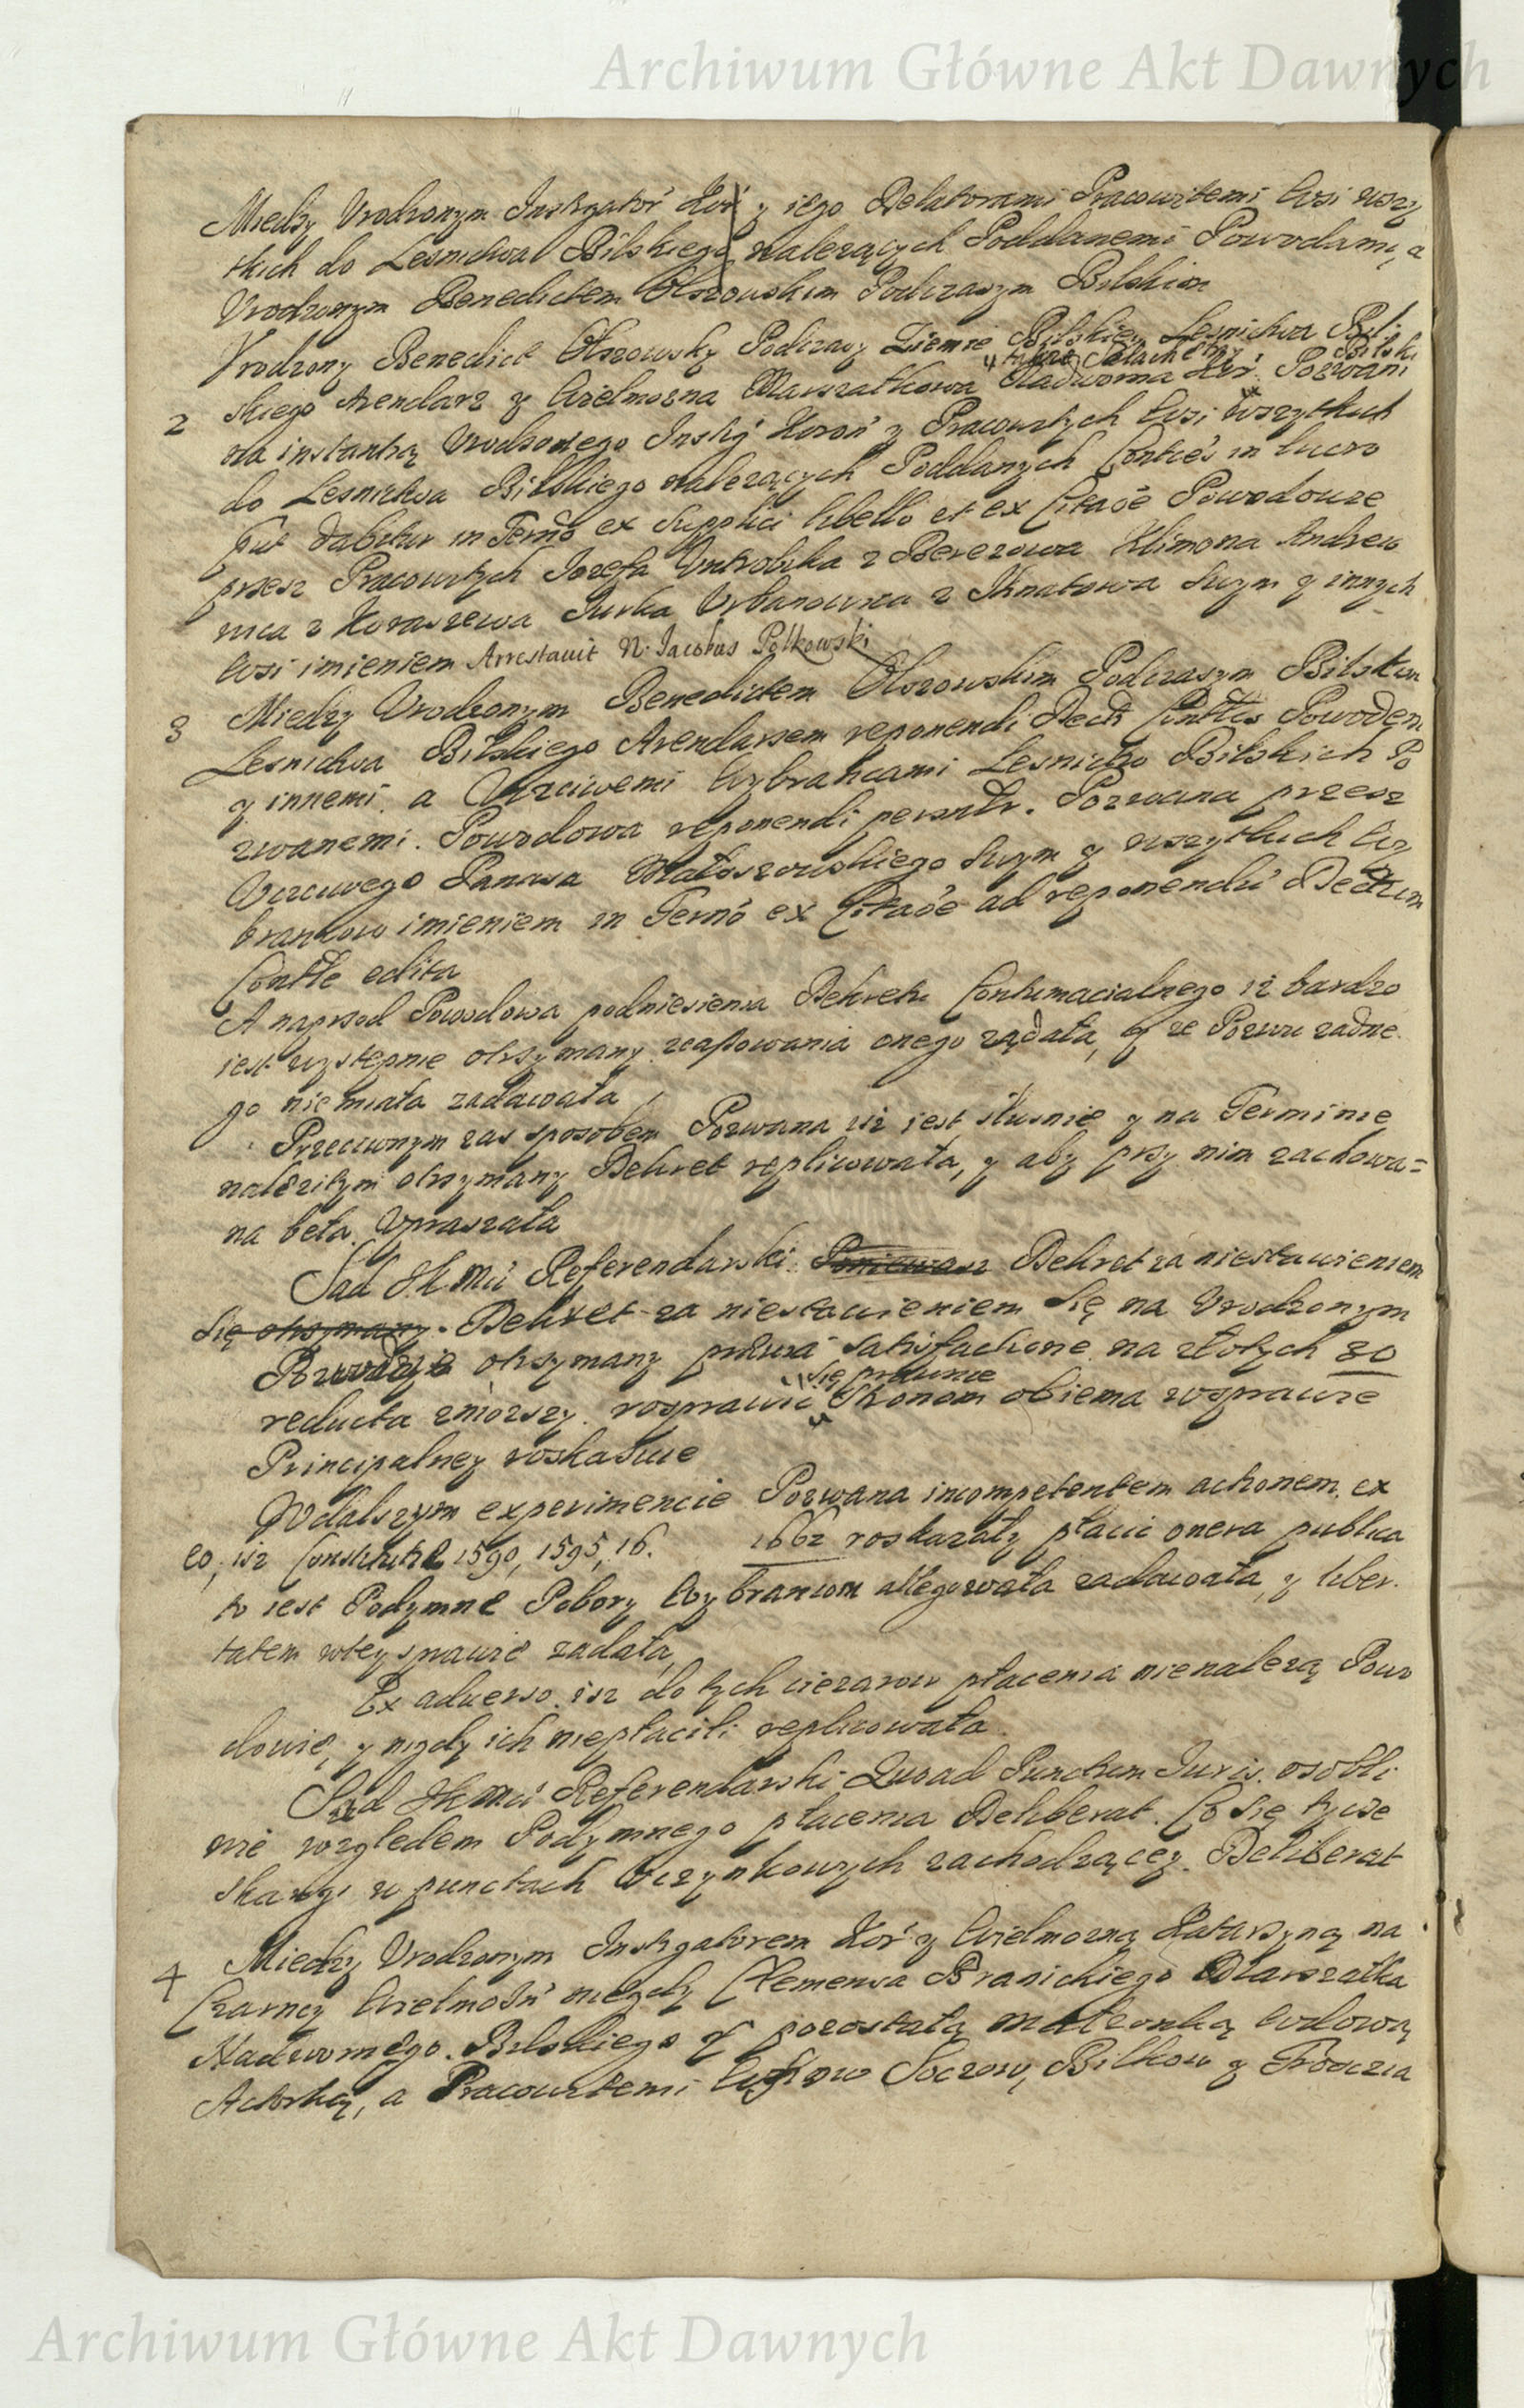 Archiwum Główne Akt Dawnych
Miedzy Vrodzonym Instygator Kor y iego Delatorami Pracowitemi Wsi wszy
tkich do Lesnictwa Bilskiego nalezących Poddanemi Powodami, a
Vrodzonym Benedictem Olszowskim Podczaszym Bilskim
Vrodzony Benedict Olszowsky Podczaszy Ziemie Bilskiey Lesnictwa Bil
Bilski
2 skiego Arendarz y Wielmozna Marszałkowa Nadworna Kor. Pozwani
na instantią Vrodzonego Instig Koron y Pracowitych Wsi wszytkich
do Lesnictwa Bilskiego nalezących Poddanych Conttes in lucro
put dabitur in Termo ex supplici libello et ex Citaoe Powodowie
przez Pracowitych Jozefa z Berezowa Klimona Andreio
wica z Koraszewa Jurka Vrbanowica z Iknatowa swym y innych
Wsi imieniem Arrestavit N. Jacobus Polkowski
3 Miedzy Vrodzonym Benedictem Olszowskim Podczaszym Bilskim
Lesnictwa Bilskiego Arendarzem reponendi Decti Conttes Powodem
y innemi. a Vczciwemi Wybrancami Lesnictwa Bilskich Po
zwanemi. Powodowa reponendi personlr. Pozwana przesz
Vczciwego Panasa Małoszowskiego swym y wszytkich Wy
brancow imieniem in Termo ex Citaoe ad reponendu Dectum
Contte edita
A naprzod Powodowa podniesienia Dekretu Contumacialnego iz bardzo
iest wzstępnie otrzymany, zcassowania onego ządała, y ze Pozwu zadne
go nie miała zadawała
Przeciwnym zas sposobem Pozwana isz iest słusnie y na Terminie
nalezitym otrzymany Dekret replicowała, y aby przy nim zachowa=
na beła. Vpraszała
Sąd JKMci Referendarski. Poniewasz Dekret za niestawieniem
się otrzymany. Dekret za niestawieniem się na Vrodzonym
Powodzie otrzymany satisfactione na złotych 30
się prawnie
reducta zniozszy. rosprawic stronom obiema w sprawie
Principalney roskazuie
W dalszym experimencie Pozwana incompetentem actionem. ex
eo, isz Constitutie 1590, 1595, 16. 1662 roskazały płacic onera publica
to iest Podymne Pobory Wybrancom allegowała zadawała, y liber
tatem w tey sprawie zadała,
Ex adverso. isz do tych ciezarow płacenia nienalezą Powo
dowie, y nigdy ich niepłacili replicowała.
Sąd JKMci Referendarski Quoad Punctum Juris. osobli
wie wzgledem Podymnego płacenia Deliberat. Co się tycze
skargi w punctach Vczynkowych zachodzącey. Deliberat
4 Miedzy Vrodzonym Instygatorem Kor y Wielmozną Katarzyną na
Czarncy Wielmozn niegdy Clemensa Branickiego Marszałka
Nadwornego. Bilskiego pozostałą małzonką wdową
Actorką, a Pracowitemi Soczow, Bilkow y
Archiwum Główne Akt Dawnych